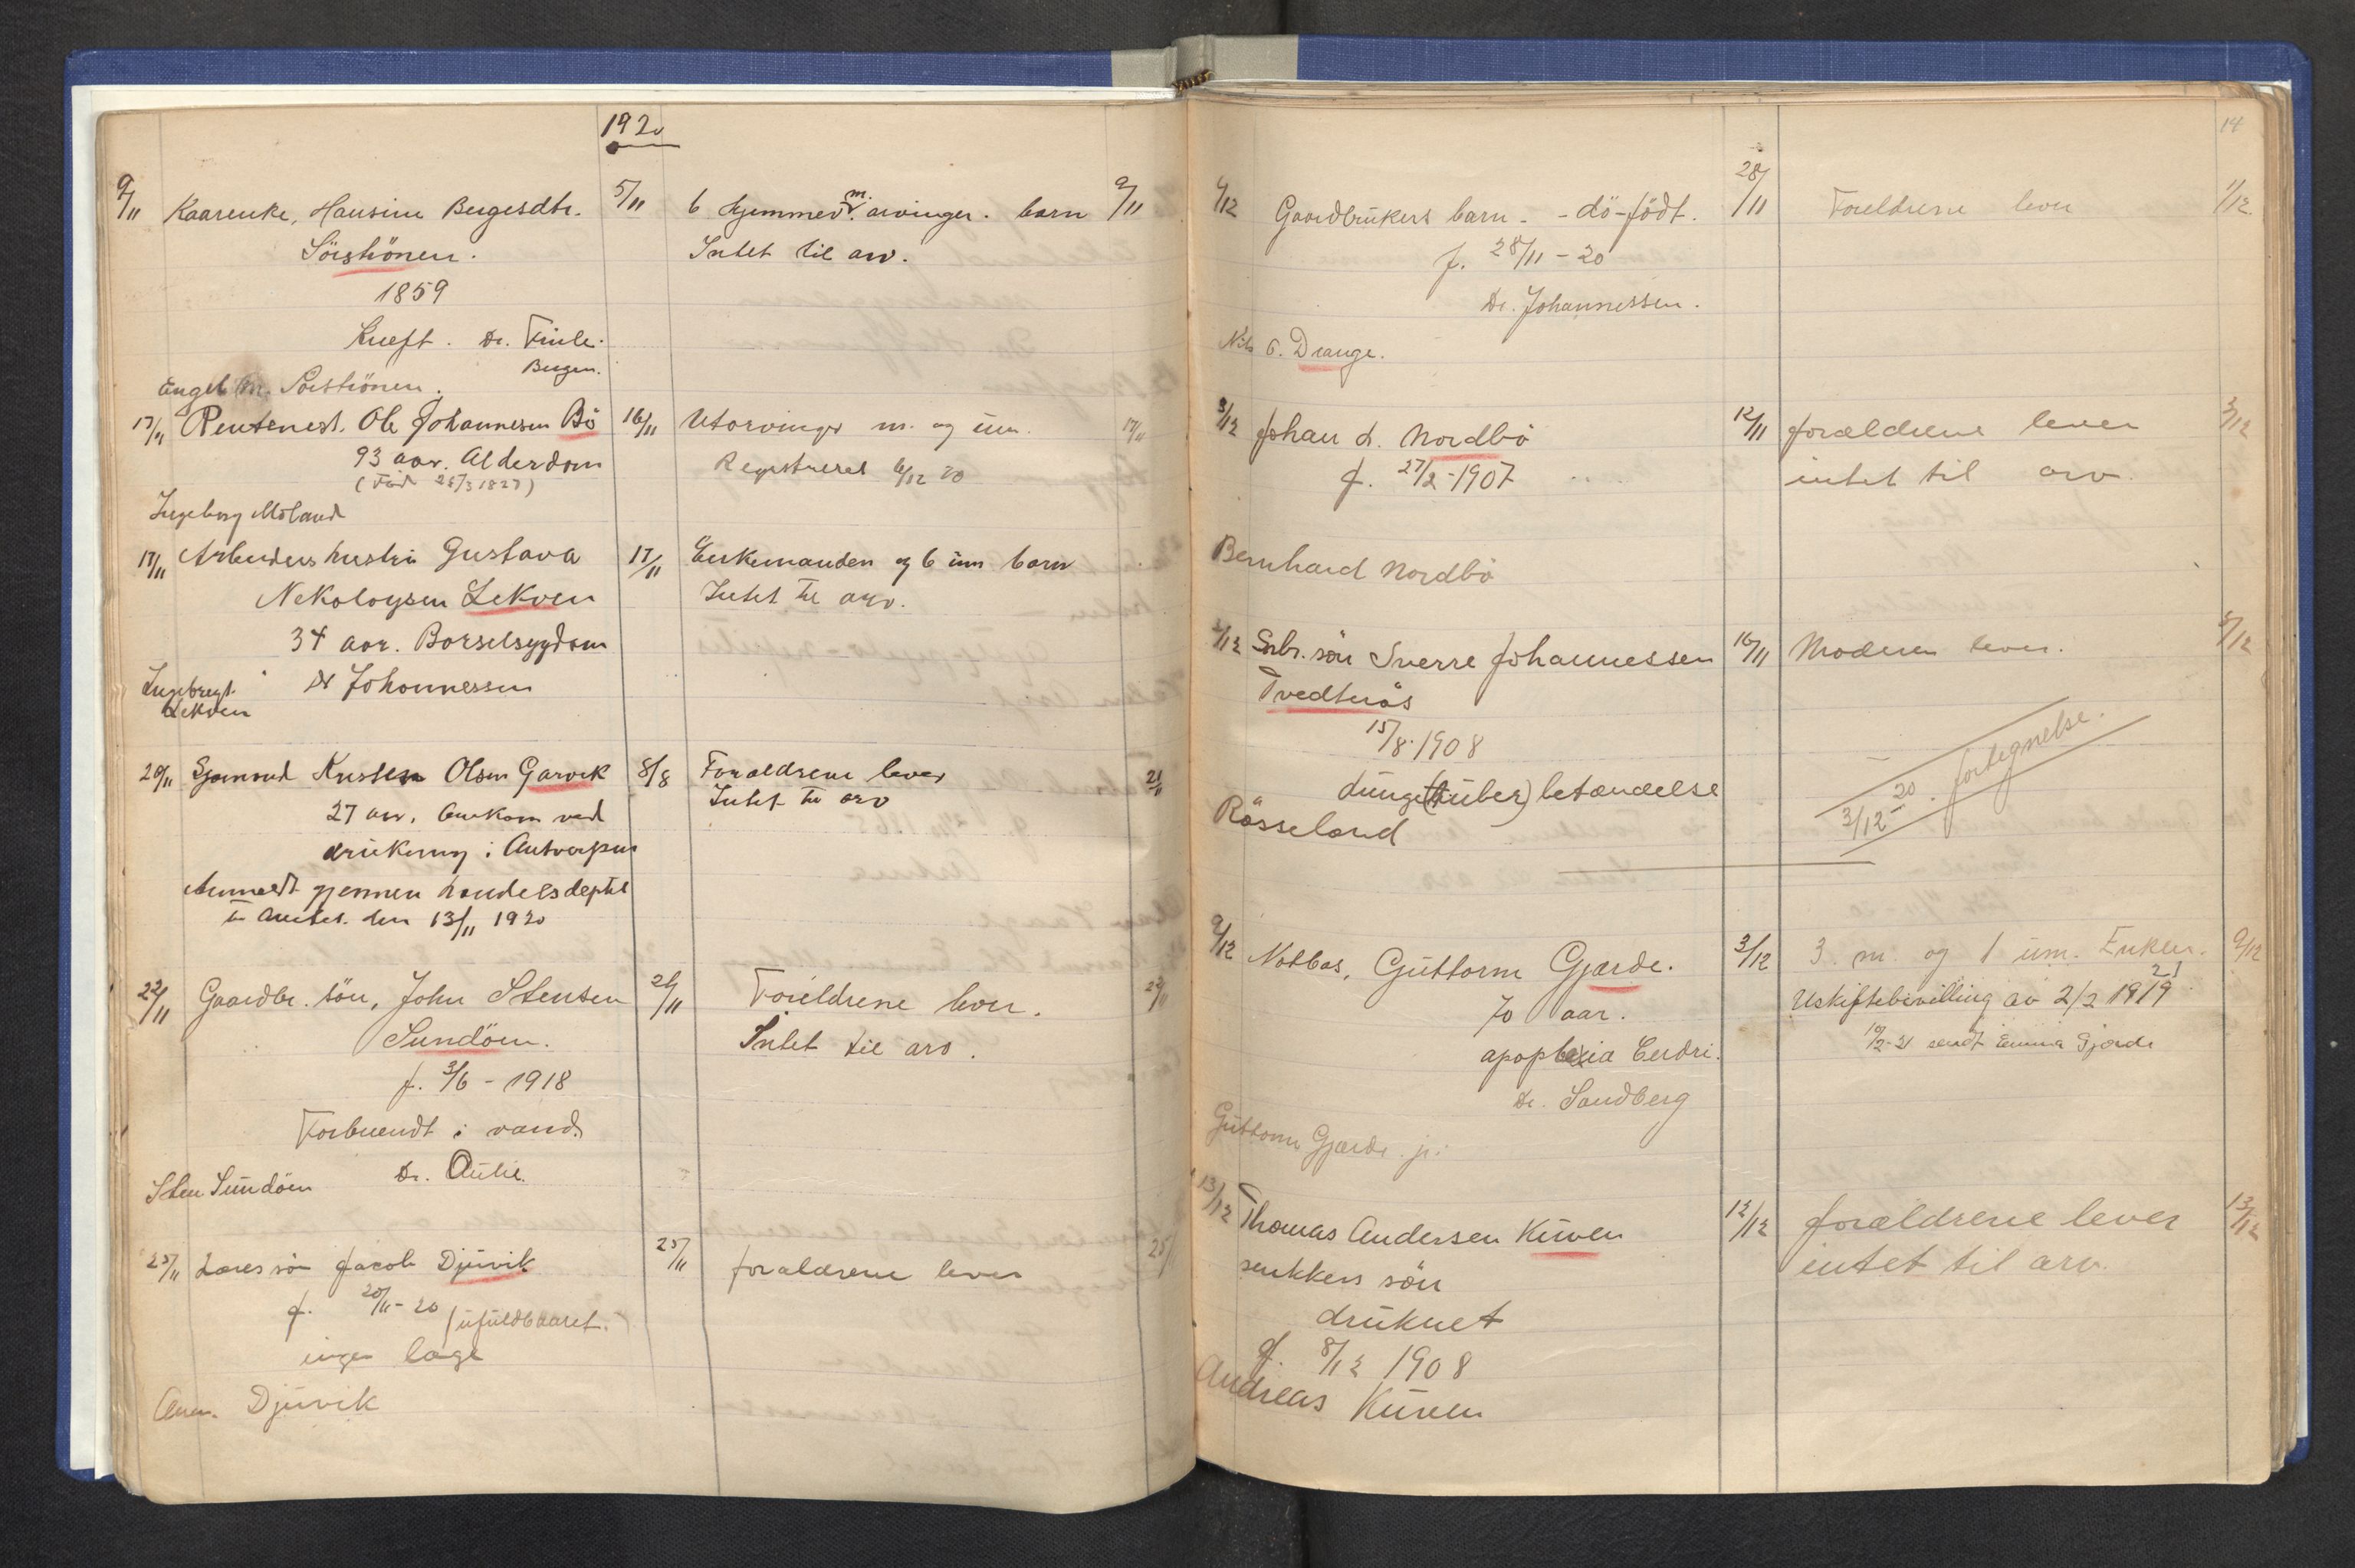 1920
9/11 Kaarenke, Hansine Bergesdtr. 5/11 6 hjemmev. m. arvinger. barn 9/11
Sörströnen. Intet til arv.
1859
Kreft. Dr. Finle.
Bergen.
Engel M. Sörströnen.
17/11 Rentenest. Ole Johannesen Bö 16/11 Utarvinger m. og um. 17/11
93 aar. Alderdom Registreret 6/12 20
(Född 28/3 1827)
Ingeborg Möland
17/11 Arbeiders hustru Gustava 17/11 Enkemanden og 6 um barn
Nekoloysen Lekven Intet til arv.
34 aar. Barselsygdom
Dr Johannessen
Ingebregt
Lekven
20/11 Sjømand Kristen Olsen Garvik 8/8 Forældrene lever 21/11
27 aar. Omkom ved Intet til arv
drukning i Antverpen
Anmeldt gjennem handelsdeptet
til Amtet den 13/11 1920
22/11 Gaardbr. sön, John Stensen 21/11 Foreldrene lever. 22/11
Sundöen. Intet til arv.
f. 3/6 - 1918
Forbrendt i vand.
Dr. Aulie.
Sten Sundöen
25/11 Læres sön Jacob Djuvik 25/11 forældrene lever 25/
f. 20/11 - 20 (ufuldbaaret.)
ingen læge
Anm. Djuvik
14
1/12 Gaardbrukers barn - - dö-födt. 28/11 Foreldrene lever 1/12
f. 28/11 - 20
Dr. Johannessen.
Nils O. Drange.
3/12 Johan d. Nordbö 12/11 forældrene lever 3/12
f. 27/2-1907 intet til arv.
Bernhard Nordbö
Snbr. sön Sverre Johannessen 16/11 Moderen lever.
Tvedtnäs
15/8.1908
Lunge (tuber) betændelse
3/12-20. fortegnelse.
Rösseland
9/12 Notbas, Guttorm Gjærde. 3/12 3. m. og 1 um. Enken. 9/12
70 aar. Uskiftebevilling av 2/2 1919 21
apoplexia Cerebri. 10/2-21 sendt Emma Gjærde
Dr. Sandberg
Guttorm Gjærde jr.
13/12 Thomas Andersen Kuven 12/12 forældrene lever 13/12
snekkers sön intet til arv.
druknet
f. 8/12 1908
Andreas Kuven